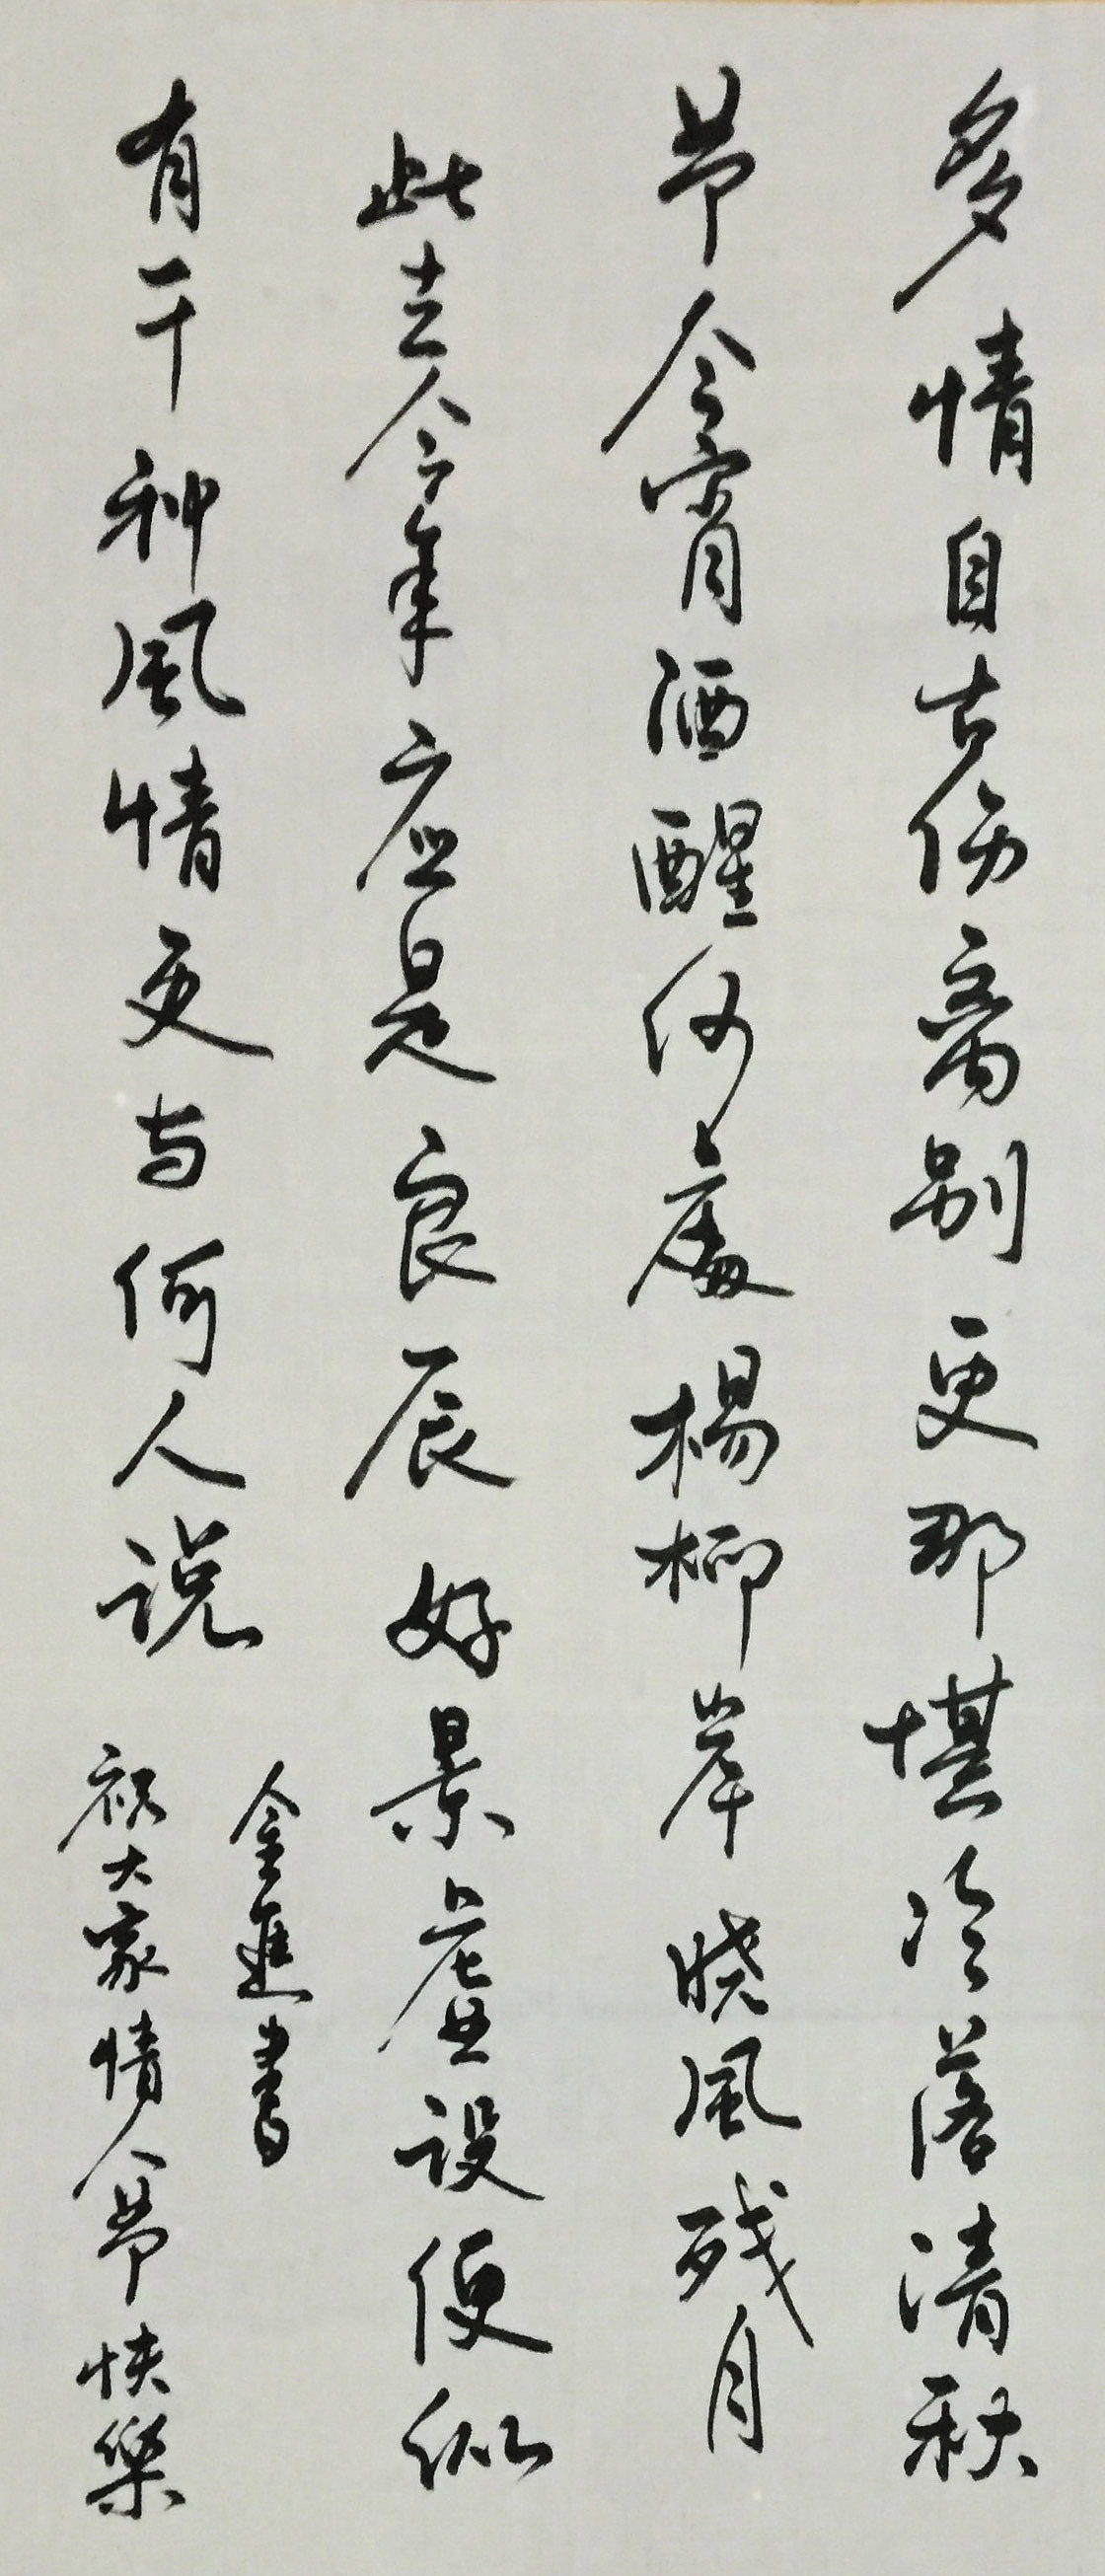 多情自古伤离别更那堪冷落清秋
节今宵酒醒何處楊柳岸晓風残月
此去今年应是良辰好景虚设便纵
有千种風情更与何人说
金進書
祝大家情人节快樂